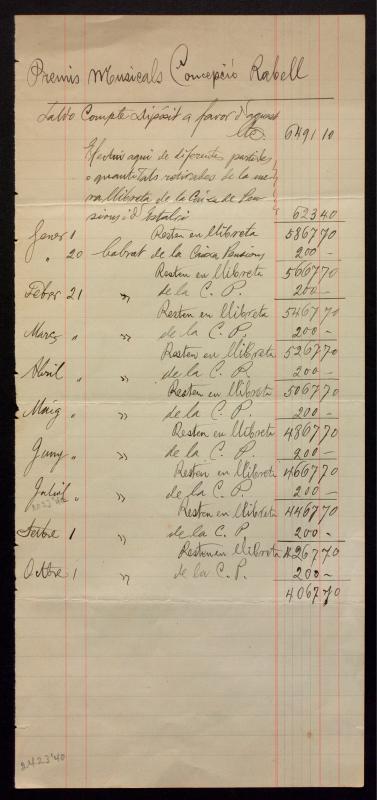 Premis Musicals Concepció Rabell
Saldo Compte dipòsit a favor d'aquest
Llt. 6491 10
Efectiu aqui de diferentes partides
o quantitats retirades de la me-
va llibreta de la Caixa de Pen-
sions i d'Estalvi 623 40
Gener 1 Resten en llibreta 5867 70
" 20 Cobrat de la Caixa Pensions 200 -
Resten en llibreta 5667 70
Febrer 21 " de la C. P. 200 -
Resten en llibreta 5467 70
Març " " de la C. P. 200 -
Resten en llibreta 5267 70
Abril " " de la C. P. 200 -
Resten en llibreta 5067 70
Maig " " de la C. P. 200 -
Resten en llibreta 4867 70
Juny " " de la C. P. 200 -
Resten en llibreta 4667 70
Juliol " " de la C. P. 200 -
Resten en llibreta 4467 70
Setbre 1 " de la C. P. 200 -
Resten en llibreta 4267 70
Octbre 1 " de la C. P. 200 -
4067 70
2423'40